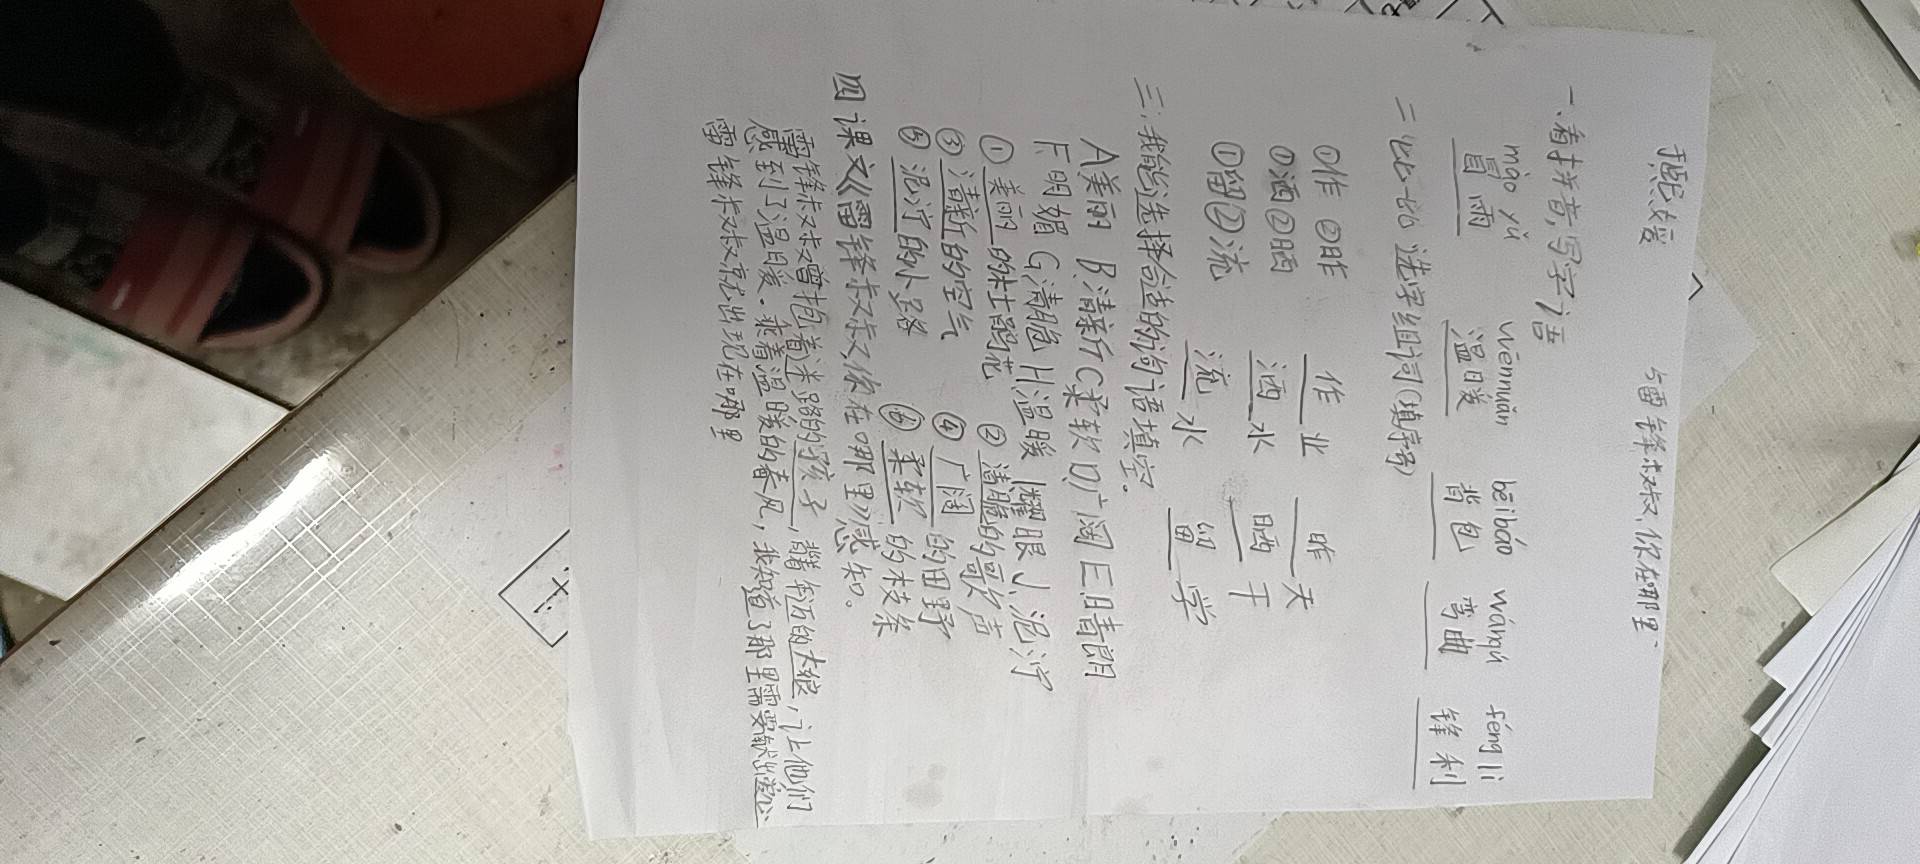 5雷锋叔叔,你在哪里
一、看拼音,写字词语
mào yǔ wēnnuǎn bēibāo wānqū fēnglì
冒雨 温暖 背包 弯曲 锋利
二比一比 选字组词(填序号)
①作 ②昨 作业 昨天
①洒②晒 洒水 晒干
①留②流 流水 留学
三:我能选择合适的词语填空。
A美丽 B清新 C柔软 D广阔 E晴朗
F.明媚 G清脆 H温暖 I耀眼 J.泥泞
①美丽的杜鹃花 ②清脆的歌声
③清新的空气 ④广阔的田野
⑤泥泞的小路 ⑥柔软的枝条
四课文《雷锋叔叔你在哪里》感知。
雷锋叔叔曾抱着迷路的孩子,背年迈的大娘,让他们
感到了温暖.乘着温暖的春风,我知道了那里需要献出爱心
雷锋叔叔就出现在哪里